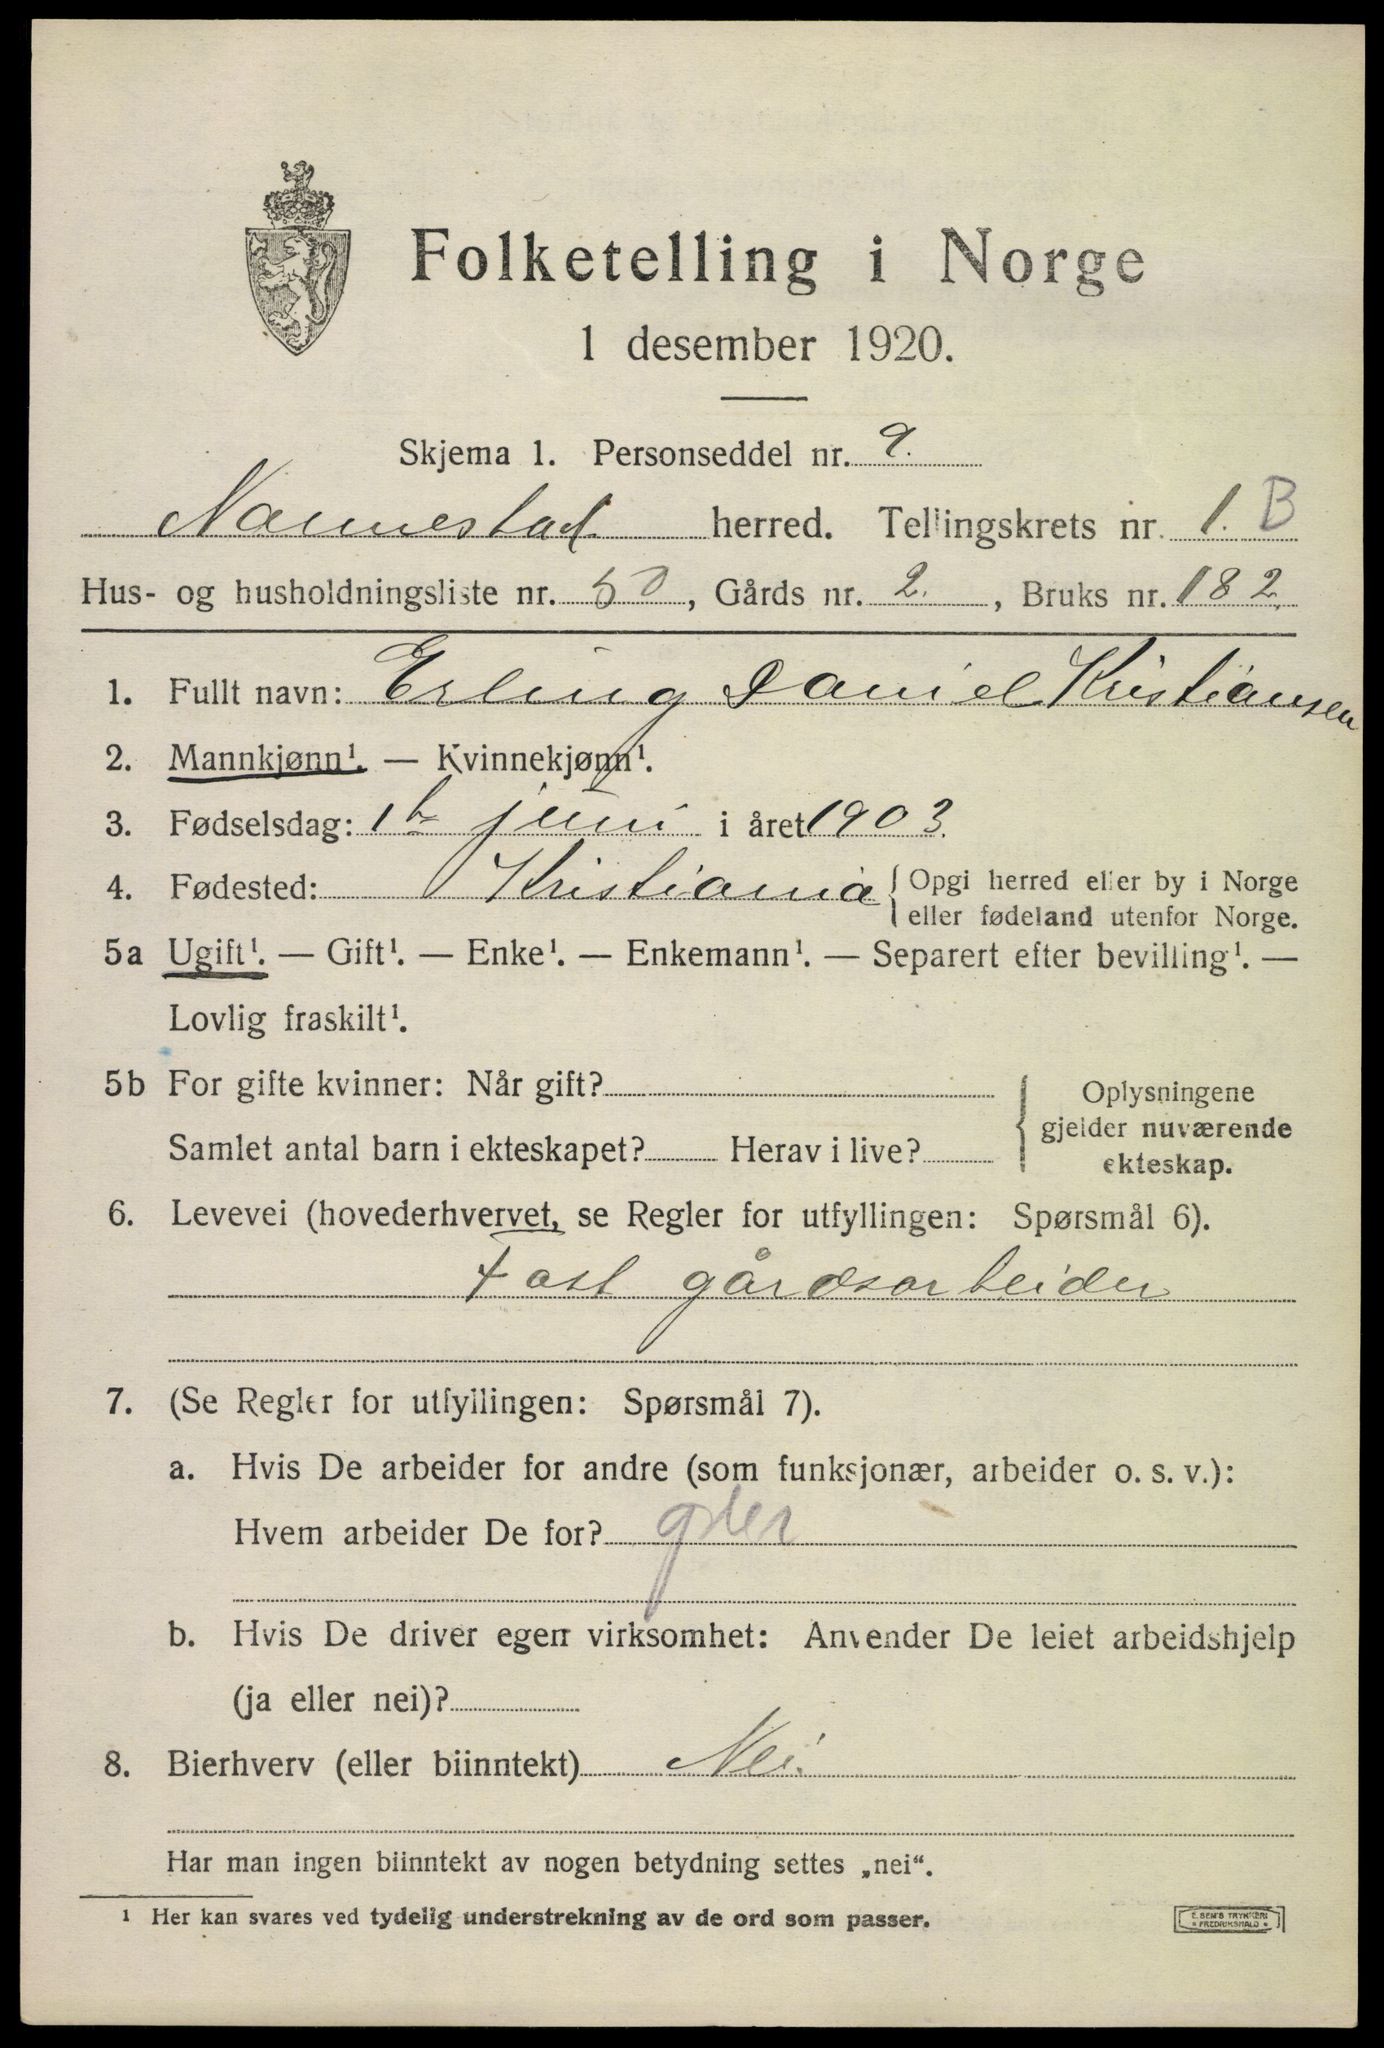 Folketelling i Norge
1 desember 1920.
Skjema 1. Personseddel nr. 9.
Nannestad herred. Tellingskrets nr. 1. B
Hus- og husholdningsliste nr. 50, Gårds nr. 2., Bruks nr. 182.
1. Fullt navn: Erling Daniel Kristiansen
2. Mannkjønn¹. — Kvinnekjønn¹.
3. Fødselsdag: 1ste juni i året 1903.
4. Fødested: Kristiania { Opgi herred eller by i Norge
eller fødeland utenfor Norge.
5a Ugift¹. — Gift¹. — Enke¹. — Enkemann¹. — Separert efter bevilling¹. —
Lovlig fraskilt¹.
5b For gifte kvinner: Når gift?
Samlet antal barn i ekteskapet? Herav i live?
{ Oplysningene
gjelder nuværende
ekteskap.
6. Levevei (hovederhvervet, se Regler for utfyllingen: Spørsmål 6).
Fast gårdsarbeider
7. (Se Regler for utfyllingen: Spørsmål 7).
a. Hvis De arbeider for andre (som funksjonær, arbeider o. s. v.):
Hvem arbeider De for?
b. Hvis De driver egen virksomhet: Anvender De leiet arbeidshjelp
(ja eller nei)?
8. Bierhverv (eller biinntekt) Nei.
Har man ingen biinntekt av nogen betydning settes „nei“.
¹ Her kan svares ved tydelig understrekning av de ord som passer.
E. SEM'S TRYKKERI
* FREDRIKSHALD *